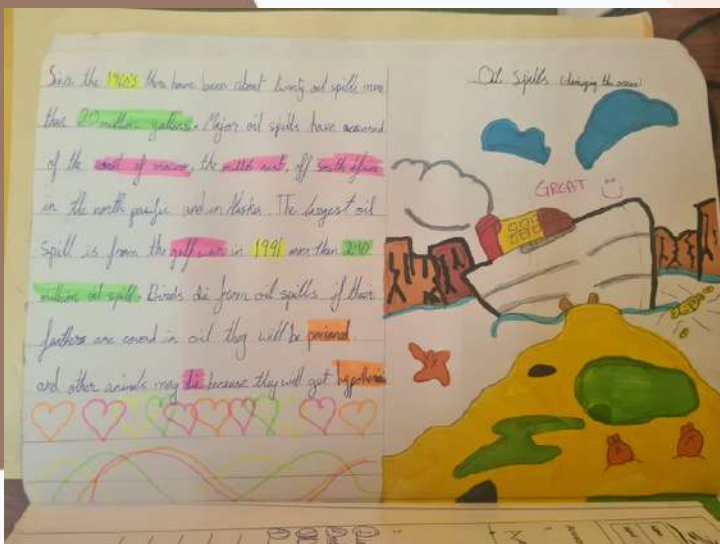 Since the 1960's there have been about twenty oil spills more
than 20 million gallons. Major oil spills have occurred
of the coast of mexico, the middle east, off south africa
in the north pacific and in Alaska. The largest oil
spill is from the gulf war in 1991 more than 240
million oil spill. Birds die from oil spills if their
feathers are coverd in oil they will be
and other animals may die because they will get hypothermia
Oil Spills (damaging the ocean)
GREAT